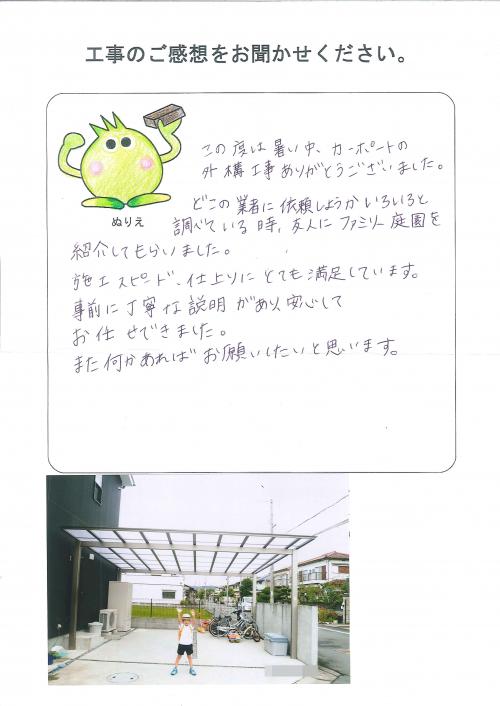 工事のご感想をお聞かせください。
ぬりえ
この度は暑い中、カーポートの
外構工事ありがとうございました。
どこの業者に依頼しようかいろいろと
調べている時、友人にファミリー庭園を
紹介してもらいました。
施工スピード、仕上りにとても満足しています。
事前に丁寧な説明があり、安心して
お任せできました。
また何かあればお願いしたいと思います。